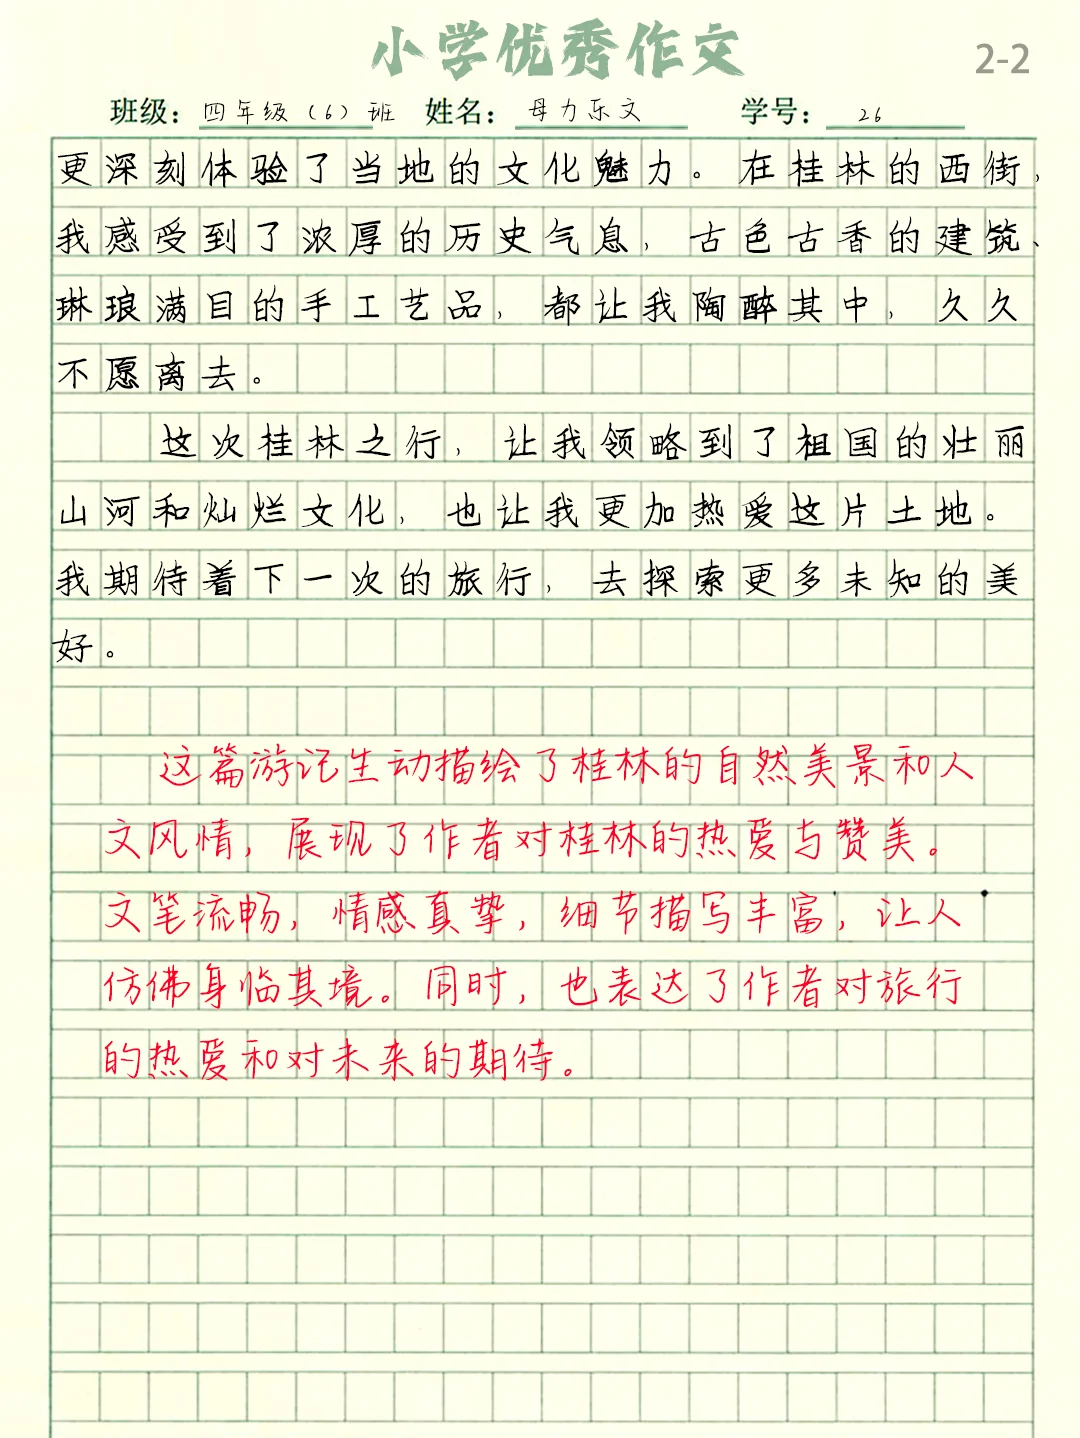 小学优秀作文
2-2
班级：四年级（6）班 姓名：母力乐文 学号：26
更深刻体验了当地的文化魅力。在桂林的西街，
我感受到了浓厚的历史气息，古色古香的建筑、
琳琅满目的手工艺品，都让我陶醉其中，久久
不愿离去。
这次桂林之行，让我领略到了祖国的壮丽
山河和灿烂文化，也让我更加热爱这片土地。
我期待着下一次的旅行，去探索更多未知的美
好。
这篇游记生动描绘了桂林的自然美景和人
文风情，展现了作者对桂林的热爱与赞美。
文笔流畅，情感真挚，细节描写丰富，让人
仿佛身临其境。同时，也表达了作者对旅行
的热爱和对未来的期待。